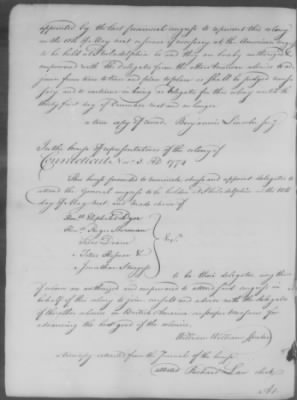 appointed by the last provincial congress to represent this colony
on the 10th of May next or sooner if necessary at the American congress
to be held at Philadelphia be and they hereby are authorized &
empowered with the delegates from the other American colonies to ad
journ from time to time and place to place as shall be judged neces
sary and to continue in being as delegates for this colony until the
thirty first day of December next and no longer
a true copy of record. Benjamin Lincoln Secy
In the house of representatives of the colony of
Connecticut Nov. 3. AD. 1774
This house proceeded to nominate choose and appoint delegates to
attend the General congress to be holden at Philadelphia on the 10th
day of May next and made choice of
Honble Eliphalet Dyer
Honble Roger Sherman
Silas Deane
Titus Hosmer &
Jonathan Sturges
Esqrs.
to be their delegates any three
of whom are authorized and empowered to attend said congress in
behalf of this colony to join consult and advise with the delegates
of the other colonies in British America on proper measures for
advancing the best good of the colonies.
William Williams Speaker
A true copy extracted from the Journals of the house
attested Richard Law clerk
At